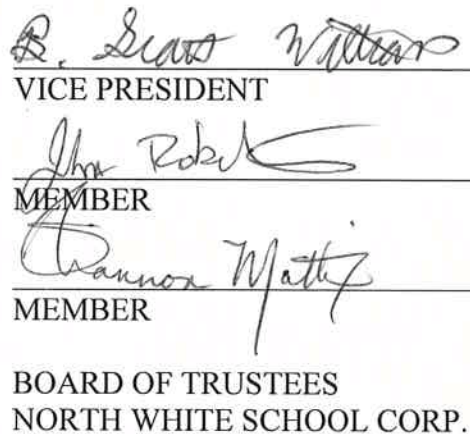 B. Scott Williams
VICE PRESIDENT
John
MEMBER
Shannon Mattix
MEMBER
BOARD OF TRUSTEES
NORTH WHITE SCHOOL CORP.